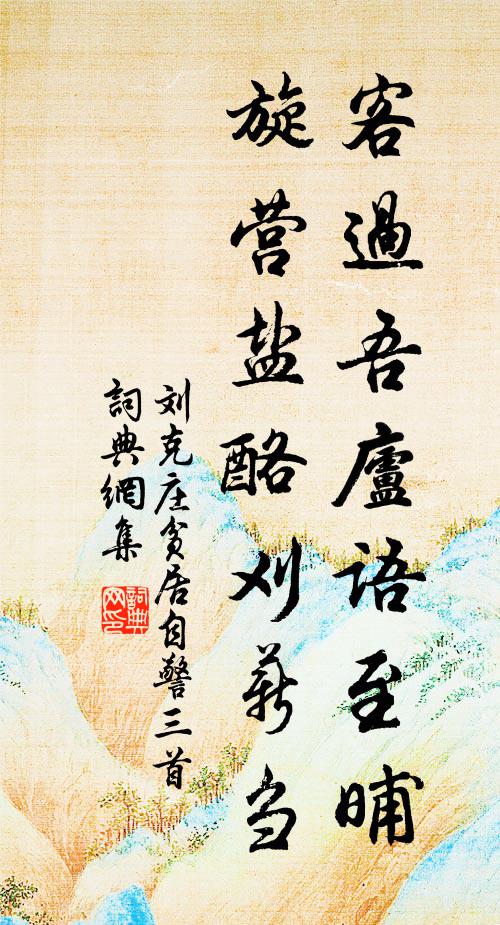 客過吾廬語至晡
旋营盐酪刈薪刍
刘克庄贫居自警三首
詞典網集
詞典网印